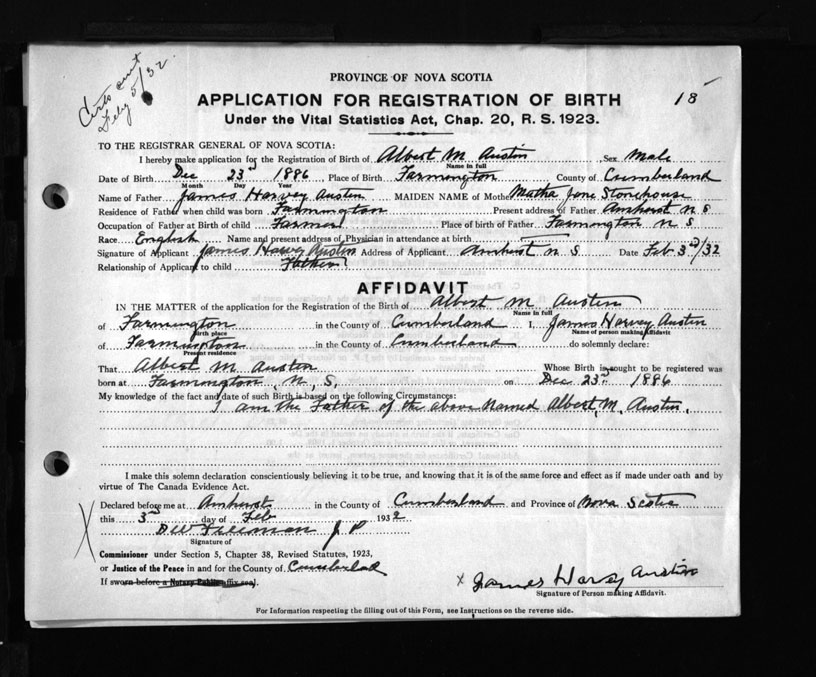 Certs sent
Feby 5/32.
18
PROVINCE OF NOVA SCOTIA
APPLICATION FOR REGISTRATION OF BIRTH
Under the Vital Statistics Act, Chap. 20, R. S. 1923.
TO THE REGISTRAR GENERAL OF NOVA SCOTIA:
I hereby make application for the Registration of Birth of Albert M Austin Sex Male
Name in full
Date of Birth Dec 23rd 1886 Place of Birth Farmington County of Cumberland
Month Day Year
Name of Father James Harvey Austin MAIDEN NAME of Mother Martha Jane Stonehouse
Residence of Father when child was born Farmington Present address of Father Amherst N S
Occupation of Father at Birth of child Farmer Place of birth of Father Farmington N S
Race English Name and present address of Physician in attendance at birth
Signature of Applicant James Harvey Austin Address of Applicant Amherst N S Date Feb 3rd/32
Relationship of Applicant to child Father
AFFIDAVIT
IN THE MATTER of the application for the Registration of the Birth of Albert M Austin
Name in full
of Farmington in the County of Cumberland I, James Harvey Austin
Birth place Name of person making Affidavit
of Farmington in the County of Cumberland do solemnly declare:
Present residence
That Albert M Austin Whose Birth is sought to be registered was
born at Farmington, N, S, on Dec 23rd 1886
My knowledge of the fact and date of such Birth is based on the following Circumstances:
I am the Father of the above Named Albert, M. Austin.
I make this solemn declaration conscientiously believing it to be true, and knowing that it is of the same force and effect as if made under oath and by
virtue of The Canada Evidence Act.
Declared before me at Amherst in the County of Cumberland and Province of Nova Scotia
this 3rd day of Feb 1932
Freeman J P
Signature of
Commissioner under Section 5, Chapter 38, Revised Statutes, 1923,
or Justice of the Peace in and for the County of Cumberland
If sworn before a Notary Public affix seal.
x James Harvey Austin
Signature of Person making Affidavit.
For Information respecting the filling out of this Form, see Instructions on the reverse side.